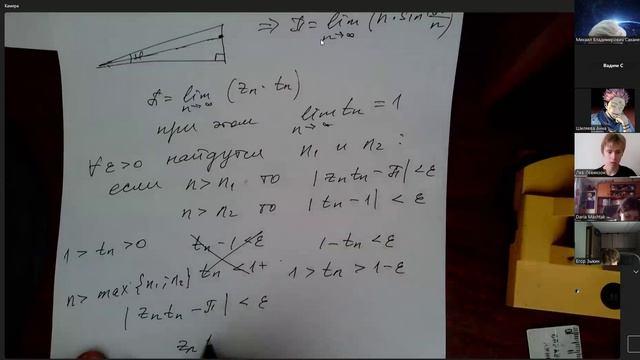 Камера
⇒ π = lim n→∞ (n · sin π/n)
π = lim n→∞ (zn · tn)
при этом lim n→∞ tn = 1
∀ε>0 найдутся n1 и n2 :
если n > n1 то |zn tn − π| < ε
n > n2 то |tn − 1| < ε
1 > tn > 0 tn − 1 < ε 1 − tn < ε
n > max{n1; n2} tn < 1 + 1 > tn > 1 − ε
|zn tn − π| < ε
zn
Михаил Владимирович Сахани
Вадим С
Шелкова Анна
Daria Machtak
Егор Зыкин